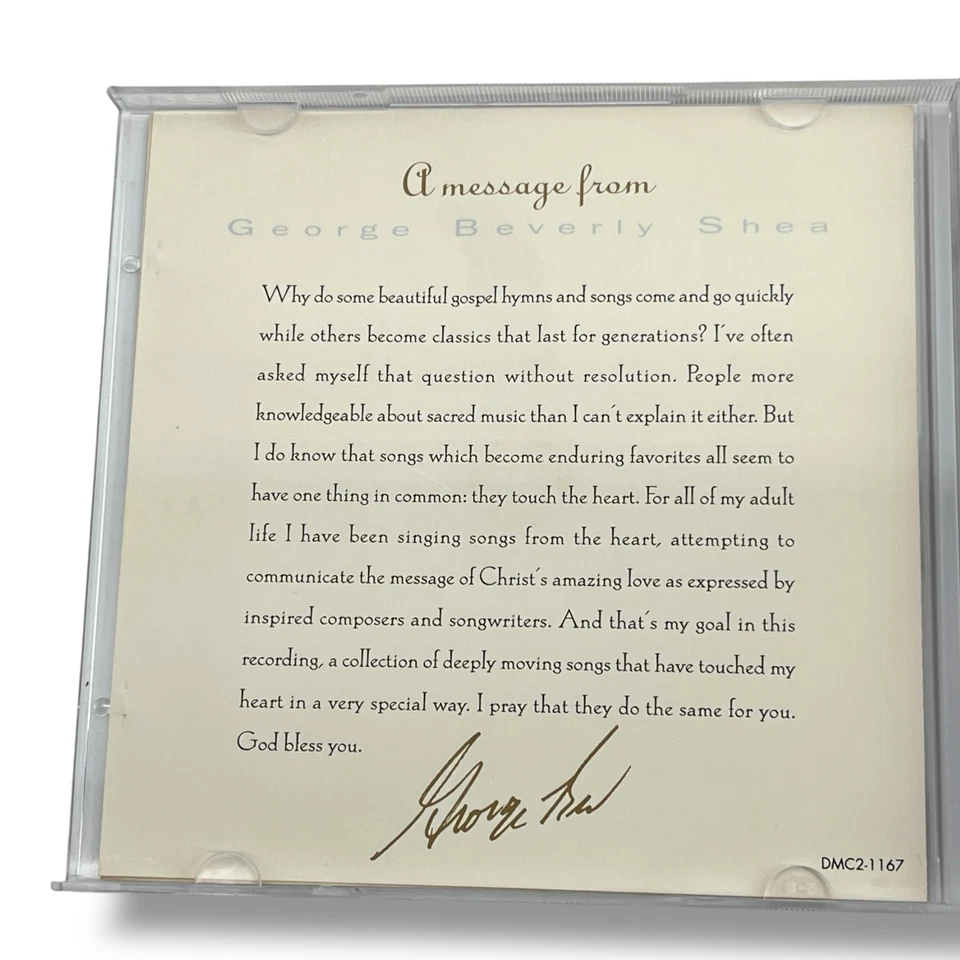 A message from
George Beverly Shea
Why do some beautiful gospel hymns and songs come and go quickly
while others become classics that last for generations? I've often
asked myself that question without resolution. People more
knowledgeable about sacred music than I can't explain it either. But
I do know that songs which become enduring favorites all seem to
have one thing in common: they touch the heart. For all of my adult
life I have been singing songs from the heart, attempting to
communicate the message of Christ's amazing love as expressed by
inspired composers and songwriters. And that's my goal in this
recording, a collection of deeply moving songs that have touched my
heart in a very special way. I pray that they do the same for you.
God bless you.
George Shea
DMC2-1167